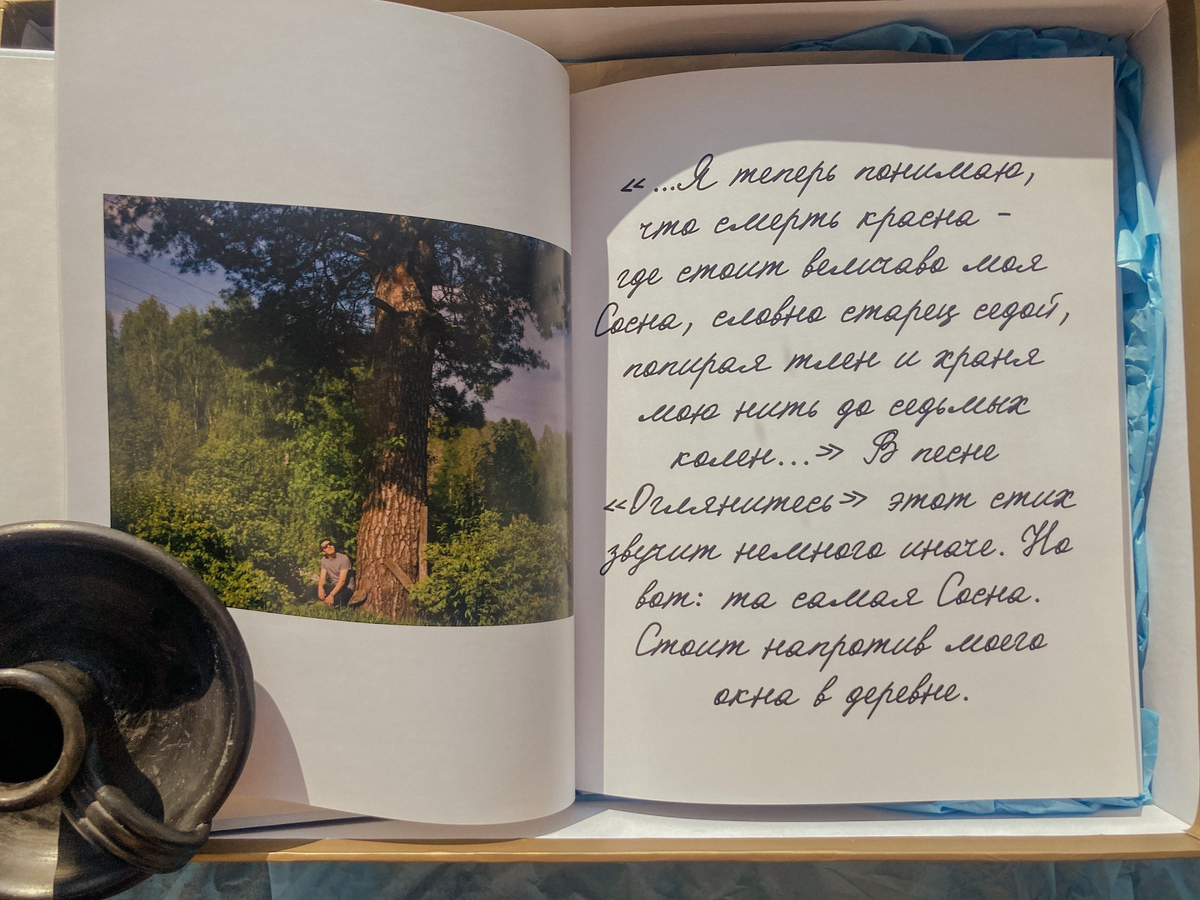 «...Я теперь понимаю,
что смерть красна -
где стоит величаво моя
Сосна, словно старец седой,
попирая тлен и храня
мою нить до седьмых
колен...» В песне
«Оглянитесь» этот стих
звучит немного иначе. Но
вот: та самая Сосна.
Стоит напротив моего
окна в деревне.